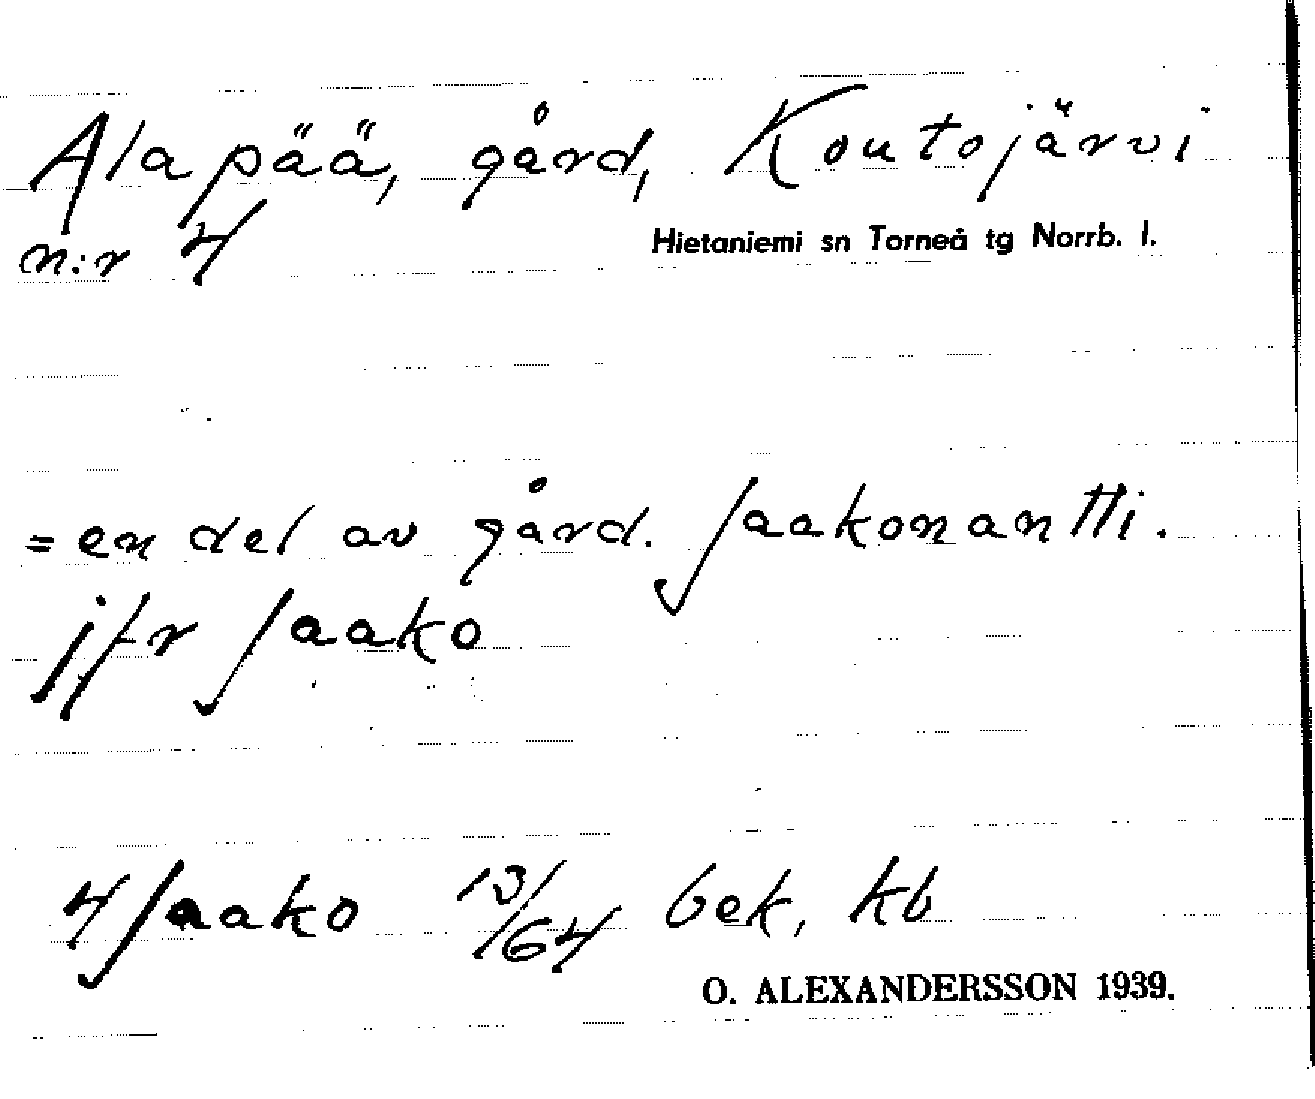 Alapää, gård, Koutojärvi
n:r 4
Hietaniemi sn Torneå tg Norrb. l.
= en del av gård. Jaakonantti.
jfr Jaako
4 Jaako 13/64 bek, kb
O. ALEXANDERSSON 1939.